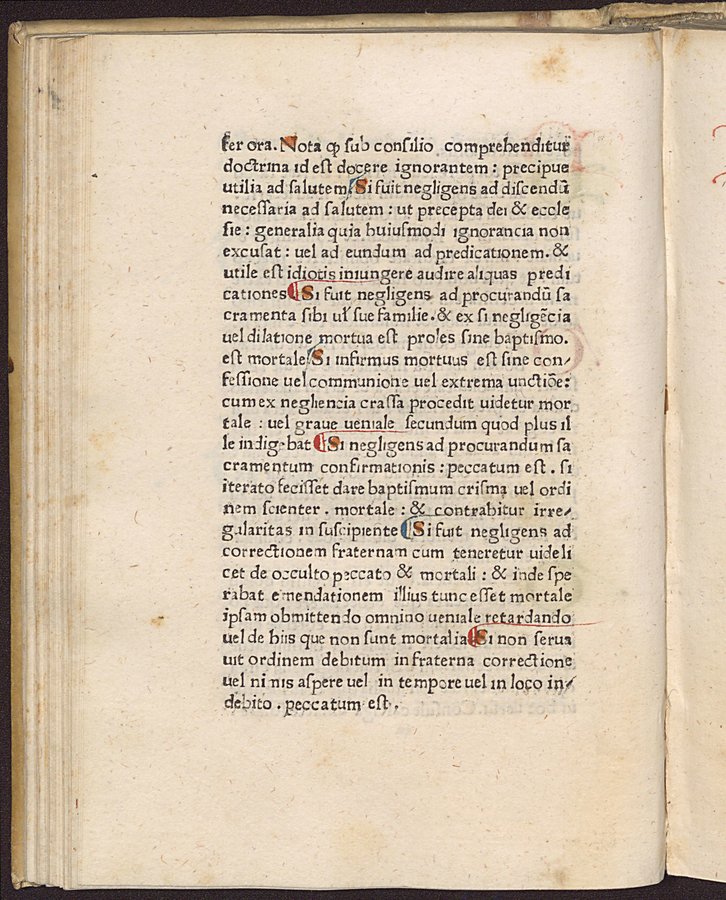 ſer ora. Nota ꝙ ſub conſilio comprehenditur
doctrina id eſt docere ignorantem : precipue
utilia ad ſalutem Si fuit negligens ad diſcendū
neceſſaria ad ſalutem : ut precepta dei & eccle
ſie : generalia quia huiuſmodi ignorancia non
excuſat : uel ad eundum ad predicationem. &
utile eſt idiotis iniungere audire aliquas predi
cationes ¶ Si fuit negligens ad procurandū ſa
cramenta ſibi uł ſue familie. & ex ſi negligēcia
uel dilatione mortua eſt proles ſine baptiſmo.
eſt mortale Si infirmus mortuus eſt ſine con⸗
feſſione uel communione uel extrema unctiōe:
cum ex negliencia craſſa procedit uidetur mor
tale : uel graue ueniale ſecundum quod plus il
le indigebat ¶ Si negligens ad procurandum ſa
cramentum confirmationis : peccatum eſt . ſi
iterato feciſſet dare baptiſmum criſma uel ordi
nem ſcienter . mortale : & contrahitur irre⸗
gularitas in ſuſcipiente ¶ Si fuit negligens ad
correctionem fraternam cum teneretur uideli
cet de occulto peccato & mortali : & inde ſpe
rabat emendationem illius tunc eſſet mortale
ipſam obmittendo omnino ueniale retardando
uel de hiis que non ſunt mortalia ¶ Si non ſerua
uit ordinem debitum in fraterna correctione
uel nimis aſpere uel in tempore uel in loco in⸗
debito . peccatum eſt .